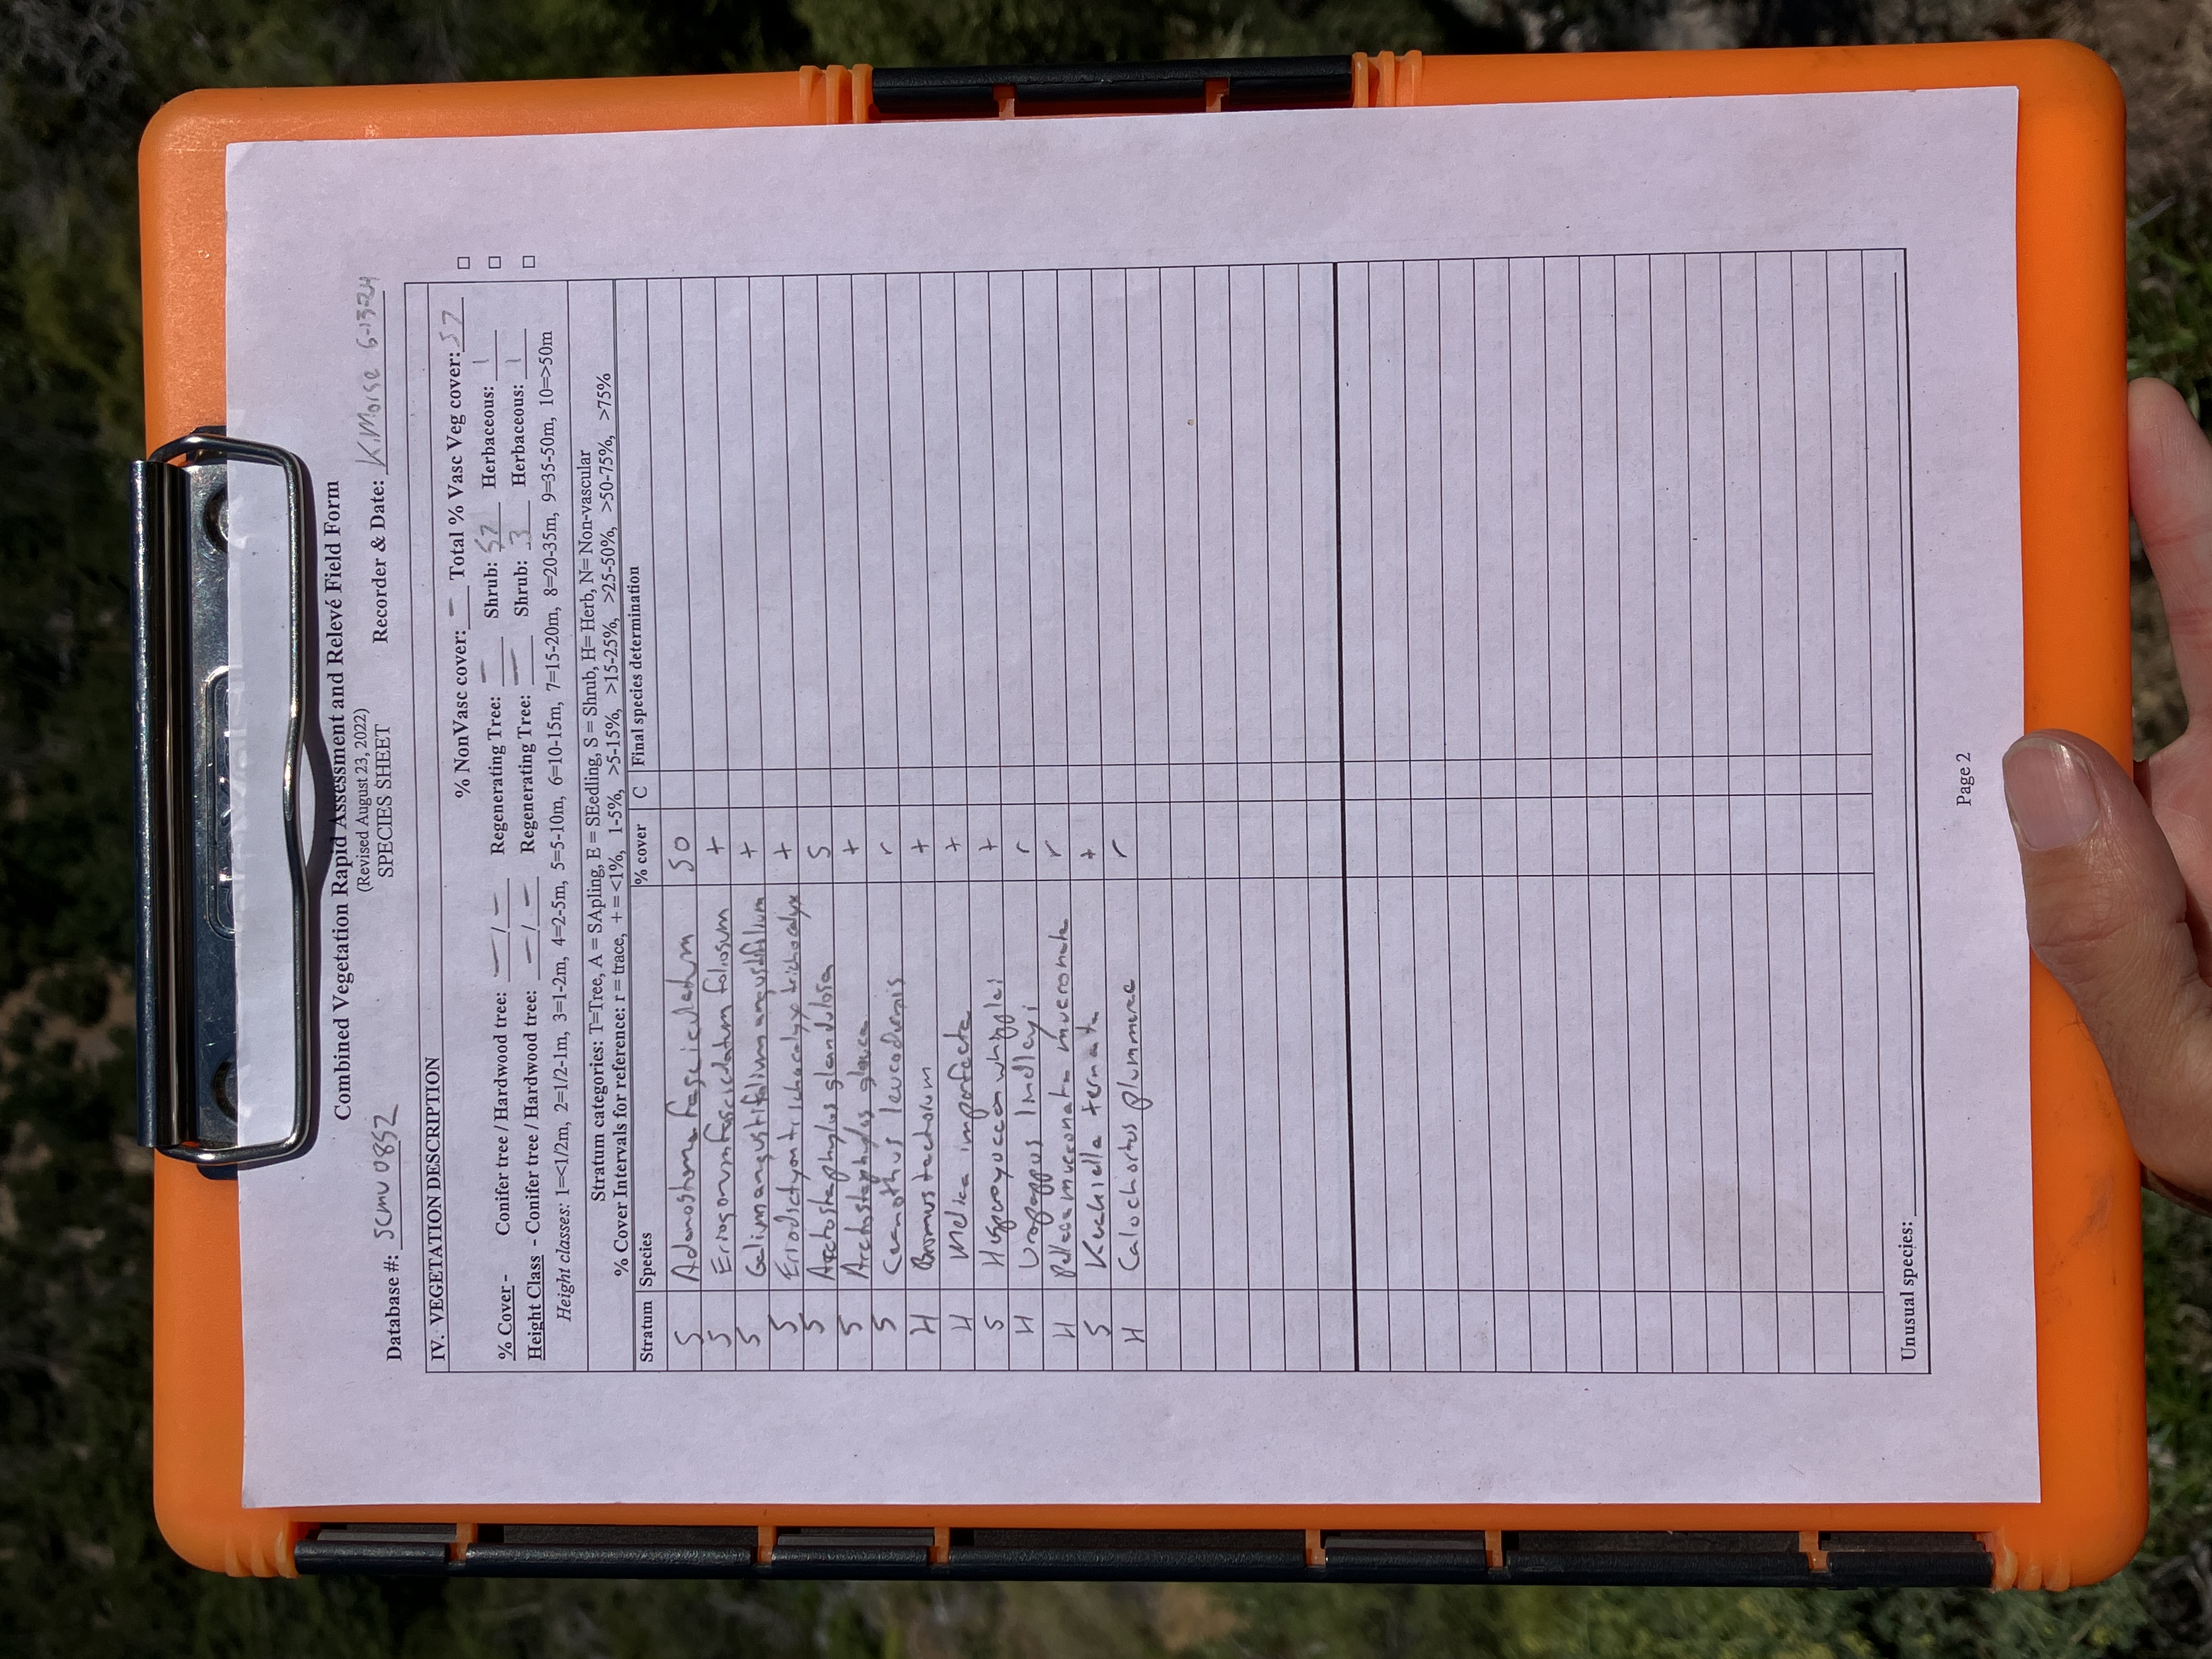 Combined Vegetation Rapid Assessment and Relevé Field Form
(Revised August 23, 2022)
SPECIES SHEET
Database #: SCMU 0852 Recorder & Date: K. Morse 6-13-24
IV. VEGETATION DESCRIPTION
% NonVasc cover: — Total % Vasc Veg cover: 57
% Cover - Conifer tree / Hardwood tree: — / — Regenerating Tree: — Shrub: 57 Herbaceous: 1
Height Class - Conifer tree / Hardwood tree: — / — Regenerating Tree: — Shrub: 3 Herbaceous: 1
Height classes: 1=<1/2m, 2=1/2-1m, 3=1-2m, 4=2-5m, 5=5-10m, 6=10-15m, 7=15-20m, 8=20-35m, 9=35-50m, 10=>50m
Stratum categories: T=Tree, A = SApling, E = SEedling, S = Shrub, H= Herb, N= Non-vascular
% Cover Intervals for reference: r = trace, + = <1%, 1-5%, >5-15%, >15-25%, >25-50%, >50-75%, >75%
Stratum Species % cover C Final species determination
S Adenostoma fasciculatum 50
S Eriogonum fasciculatum foliosum +
S Galium angustifolium angustifolium +
S Eriodictyon trichocalyx trichocalyx +
S Arctostaphylos glandulosa 5
S Arctostaphylos glauca +
S Ceanothus leucodermis r
H Bromus tectorum +
H Melica imperfecta +
S Hesperoyucca whipplei +
H Uropappus lindleyi r
H Pellaea mucronata mucronata r
S Keckiella ternata +
H Calochortus plummerae r
Unusual species:
Page 2